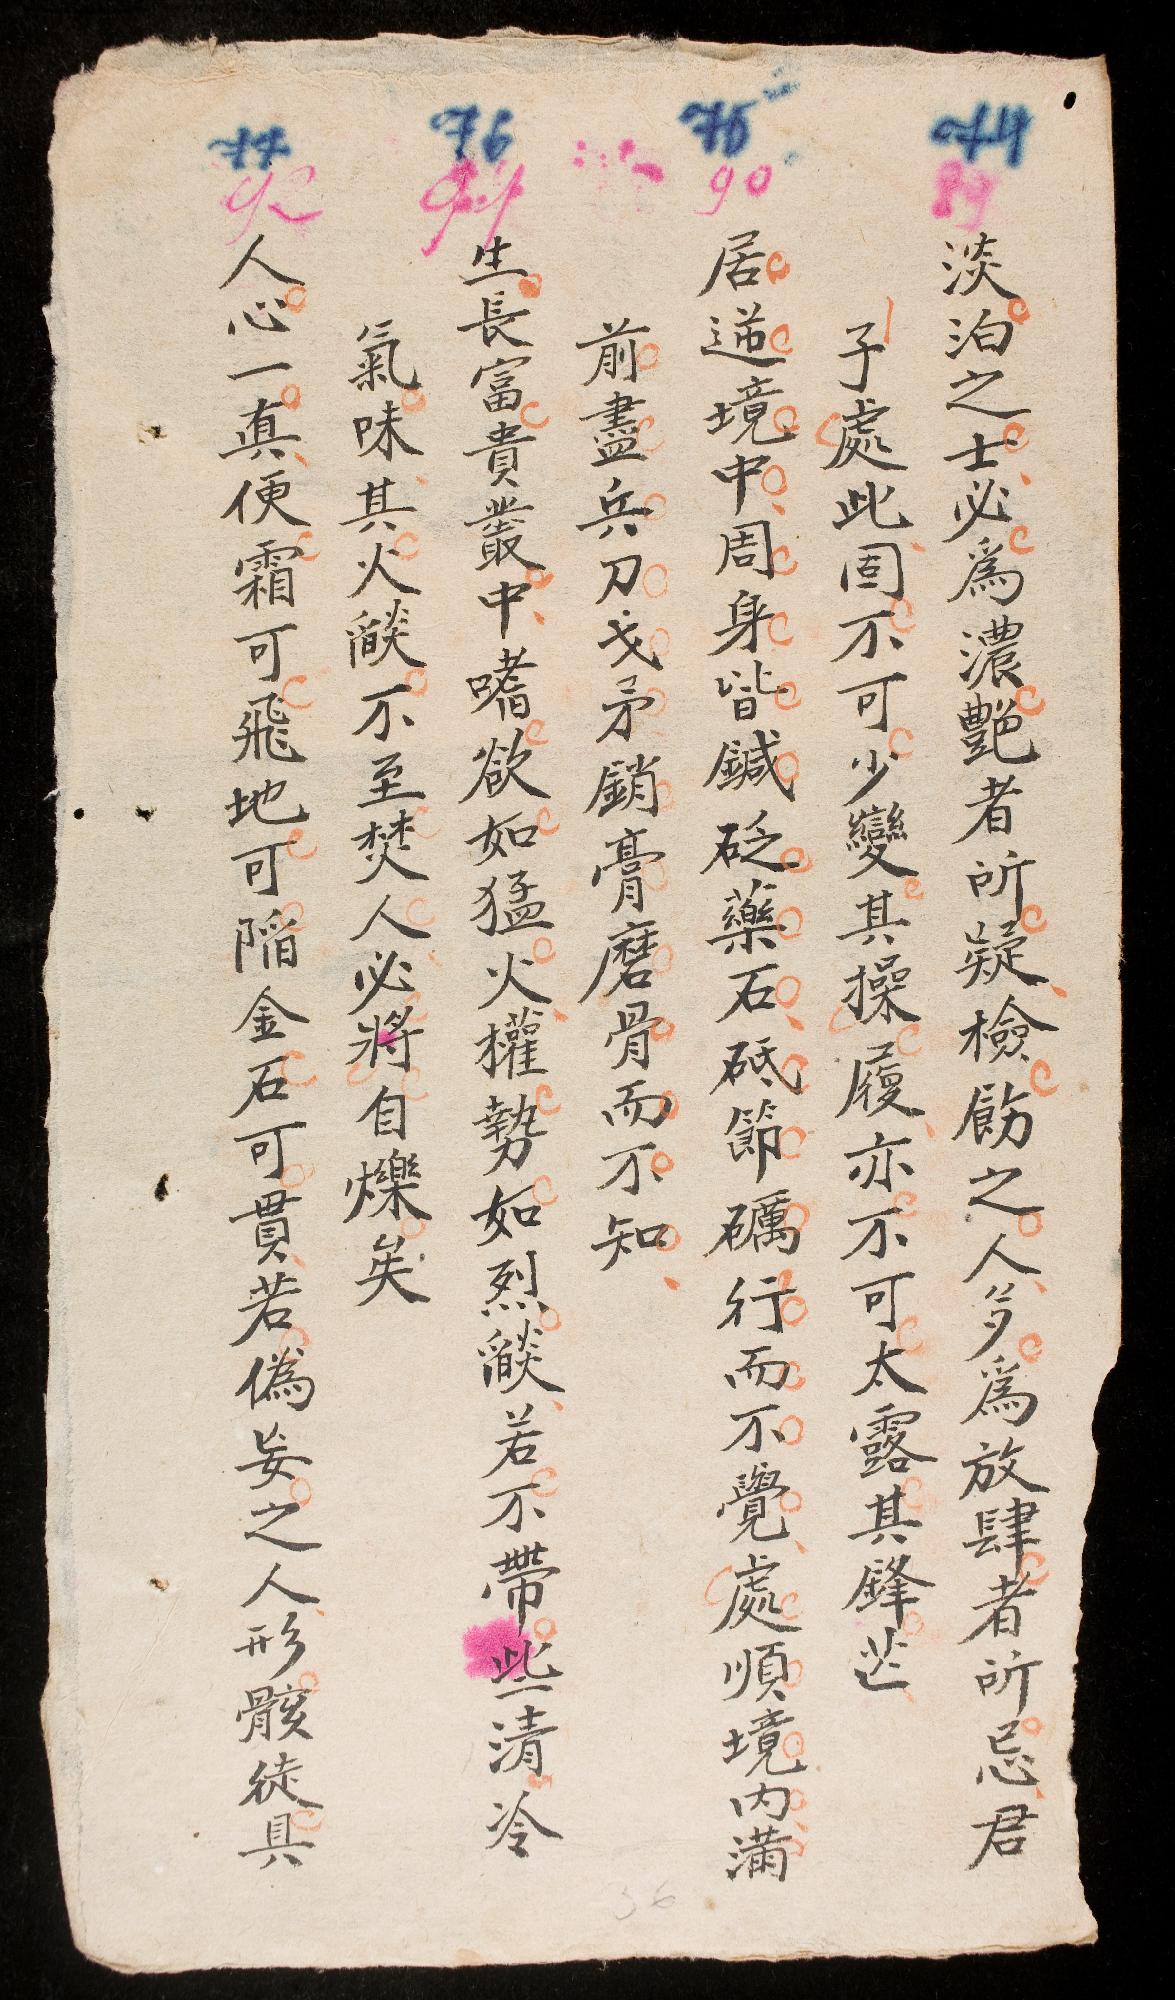 74
89
淡泊之士必爲濃艷者所疑檢飭之人多爲放肆者所忌君
子處此固不可少變其操履亦不可太露其鋒芒
75
90
居逆境中周身皆鍼砭藥石砥節礪行而不覺處順境內滿
前盡兵刀戈矛銷膏磨骨而不知
76
91
生長富貴叢中嗜欲如猛火權勢如烈燄若不帶些清冷
氣味其火燄不至焚人必將自爍矣
77
92
人心一真便霜可飛地可陷金石可貫若偽妄之人形骸徒具
36